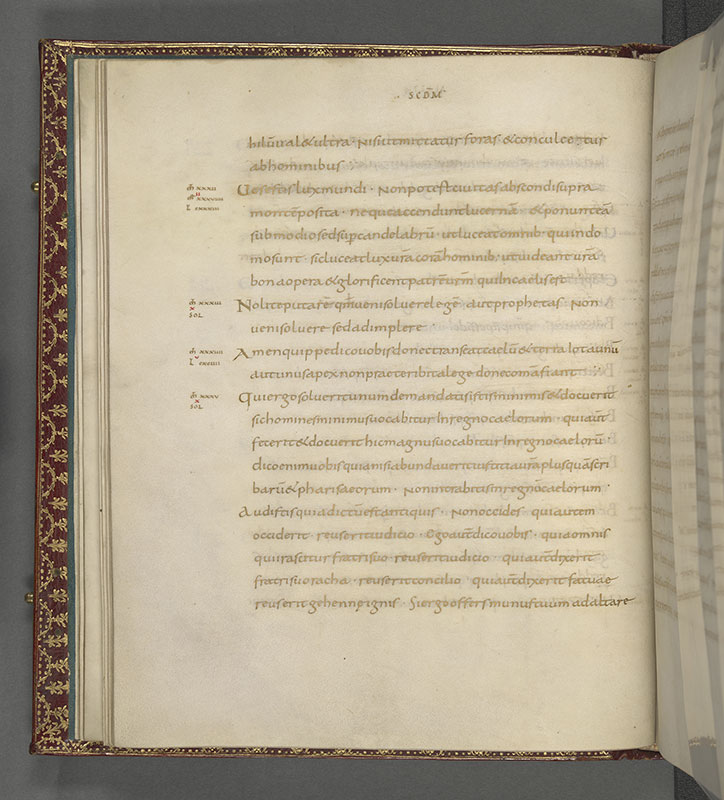 SCDM
hilū ual& ultra · Nisi ut mittatur foras · & conculcetur
ab hominibus ·
Uos estis lux mundi · Non potest ciuitas abscondi supra
montē posita · neque accendunt lucernā & ponunt eā
sub modio sed sup candelabrū · ut luceat omnib · qui in do
mo sunt · sic luceat lux ura corā hominib · ut uideant ura
bona opera & glorificent patrē urm qui in caelis est
Nolite putare qm ueni soluere legē aut prophetas · Non
ueni soluere sed adimplere
Amen quippe dico uobis donec transeat caelū & terra Iota unū
aut unus apex non praeteribit a lege donec omnia fiant
Qui ergo soluerit unum de mandatis istis minimis & docuerit
sic homines minimus uocabitur In regno caelorum · qui aut
fecerit & docuerit hic magnus uocabitur In regno caelorū ·
dico enim uobis quia nisi abundauerit iustitia ura plus quā scri
barū & pharisaeorum · Non intrabitis in regnū caelorum ·
Audistis quia dictū est antiquis · Non occides · qui autem
occiderit · reus erit iudicio · Ego aut dico uobis · quia omnis
qui irascitur fratri suo reus erit iudicio · qui aut dixerit
fratri suo racha · reus erit concilio · qui aut dixerit fatuae
reus erit gehennę ignis · Si ergo offers munus tuum ad altare